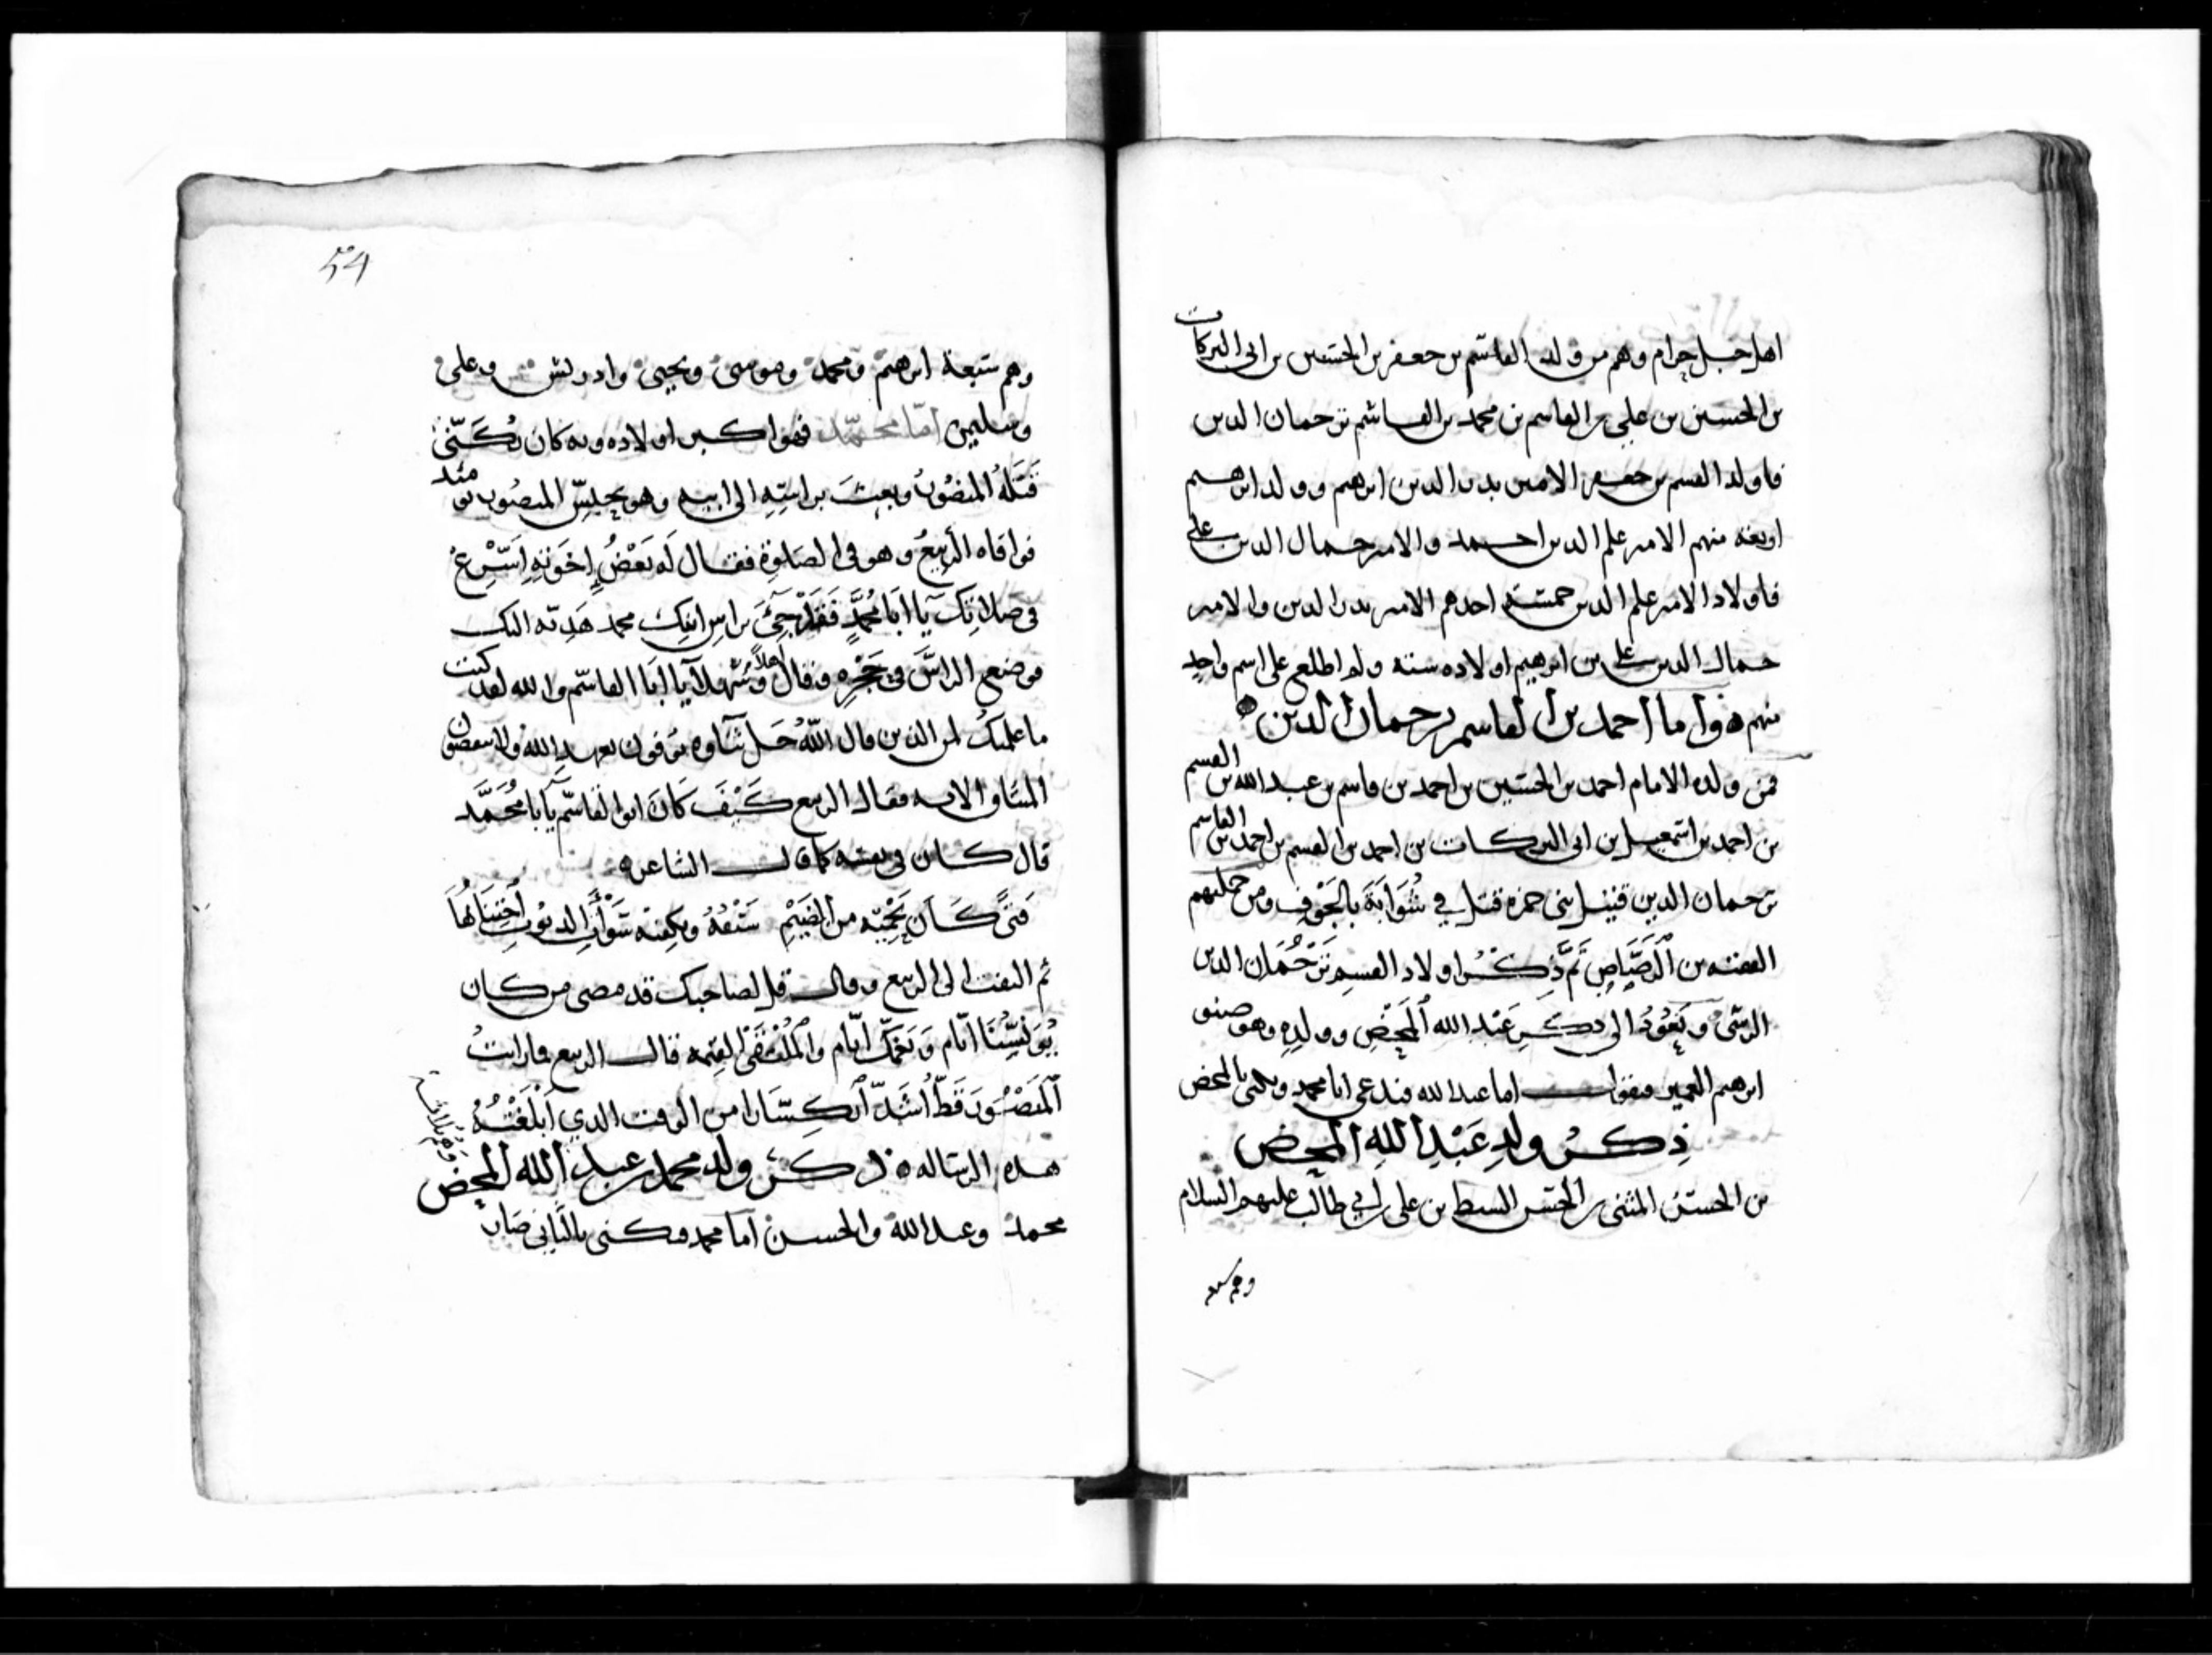 اهل جبل حرام وهم من ولد القاسم بن جعفر بن الحسين بن ابي البركات
بن الحسين بن علي بن القاسم بن محمد بن القاسم بن ترجمان الدين
فاولد القسم بن جعفر الامير بدر الدين ابرهيم وولد ابرهيم
اربعة منهم الامير علم الدين احمد والامير جمال الدين علي
فاولاد الامير علم الدين خمسة احدهم الامير بدر الدين والامير
جمال الدين علي بن ابرهيم اولاده ستة ولم اطلع على اسم واحد
منهم ه واما احمد بن القاسم ترجمان الدين
فمن ولده الامام احمد بن الحسين بن احمد بن قاسم بن عبد الله بن القسم
بن احمد بن اسمعيل بن ابي البركات بن احمد بن القسم بن احمد بن القاسم
ترجمان الدين قتيل بني حمزه قتل في شُوَابَة بالجَوف ومن جملتهم
الفقيه بن الرَصَّاصِ تَمَّ ذِكْرُ اولاد القسم تَرْجُمَان الدين
الرسي ونَعُوْدُ الى ذكرِ عَبْد الله المَحْضِ وولدِهِ وهو صنو
ابرهيم الغمر فنقول اما عبد الله فيدعى ابا محمد ويلقب بالمحض
ذِكْر ولدِ عَبْدِ اللهِ المحض
بن الحسن المثنى بن الحسن السبط بن علي بن ابي طالب عليهم السلام
وهم سبعه
54
وهم سبعة ابرهيم ومحمد وموسى ويحيى وادريس وعلي
وسليمن امّا محمّد فهو اكبر اولاده وبه كان يُكَنّى
قَتَلَهُ المنصُورُ وبعث براسِهِ الى ابيه وهو بحبسِ المنصور يومئذ
فوافاه الربيعُ وهو في الصلوة فقال لَه بَعْضُ إخْوَتِهِ اَسْرِعْ
في صلاتك يا ابا محمَّدٍ فَقَدْ جِيْءَ براس ابنك محمد هَدِيّه اليك
فوضع الراسَ في حَجْرِه وقال اهلاً وسَهْلاً يا ابَا القاسم والله لقد كنت
ما علمتك لمن الذين قال اللّهُ جَل ثناوه يوفون بعهد الله ولا ينقضون
الميثاق الايه فقال الربيع كَيْفَ كَانَ ابو القاسم يا با مُحَمَّد
قال كان في نفسه كما قال الشاعر ه
فَتىً كَان يَحْمِيْه من الضَيْمِ سَيْفُهُ ويكفيه سَوْأَتِ الذنوبِ اجْتِنَابُهَا
ثم التفت الى الربيع وقال قل لصاحبك قد مضى من كان
بُؤسِنَا ايّام وَنَعِمَك ايّام والمُلْتَقَى القيمه قال الربيع فما رايتُ
المَنصُورَ قَطُّ اَشَدّ انكِسَارا من الوقت الذي ابْلَغْتُهُ
هذه الرساله ه ذكر ولد محمد بن عبد الله المحض
محمد وعبد الله والحسن اما محمد فكني بالثاني